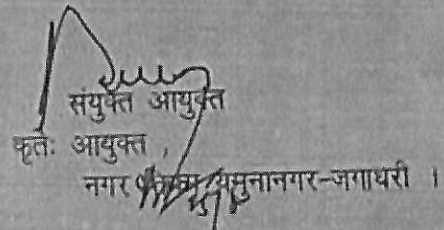 संयुक्त आयुक्त
कृतेः आयुक्त ,
नगर यमुनानगर-जगाधरी ।